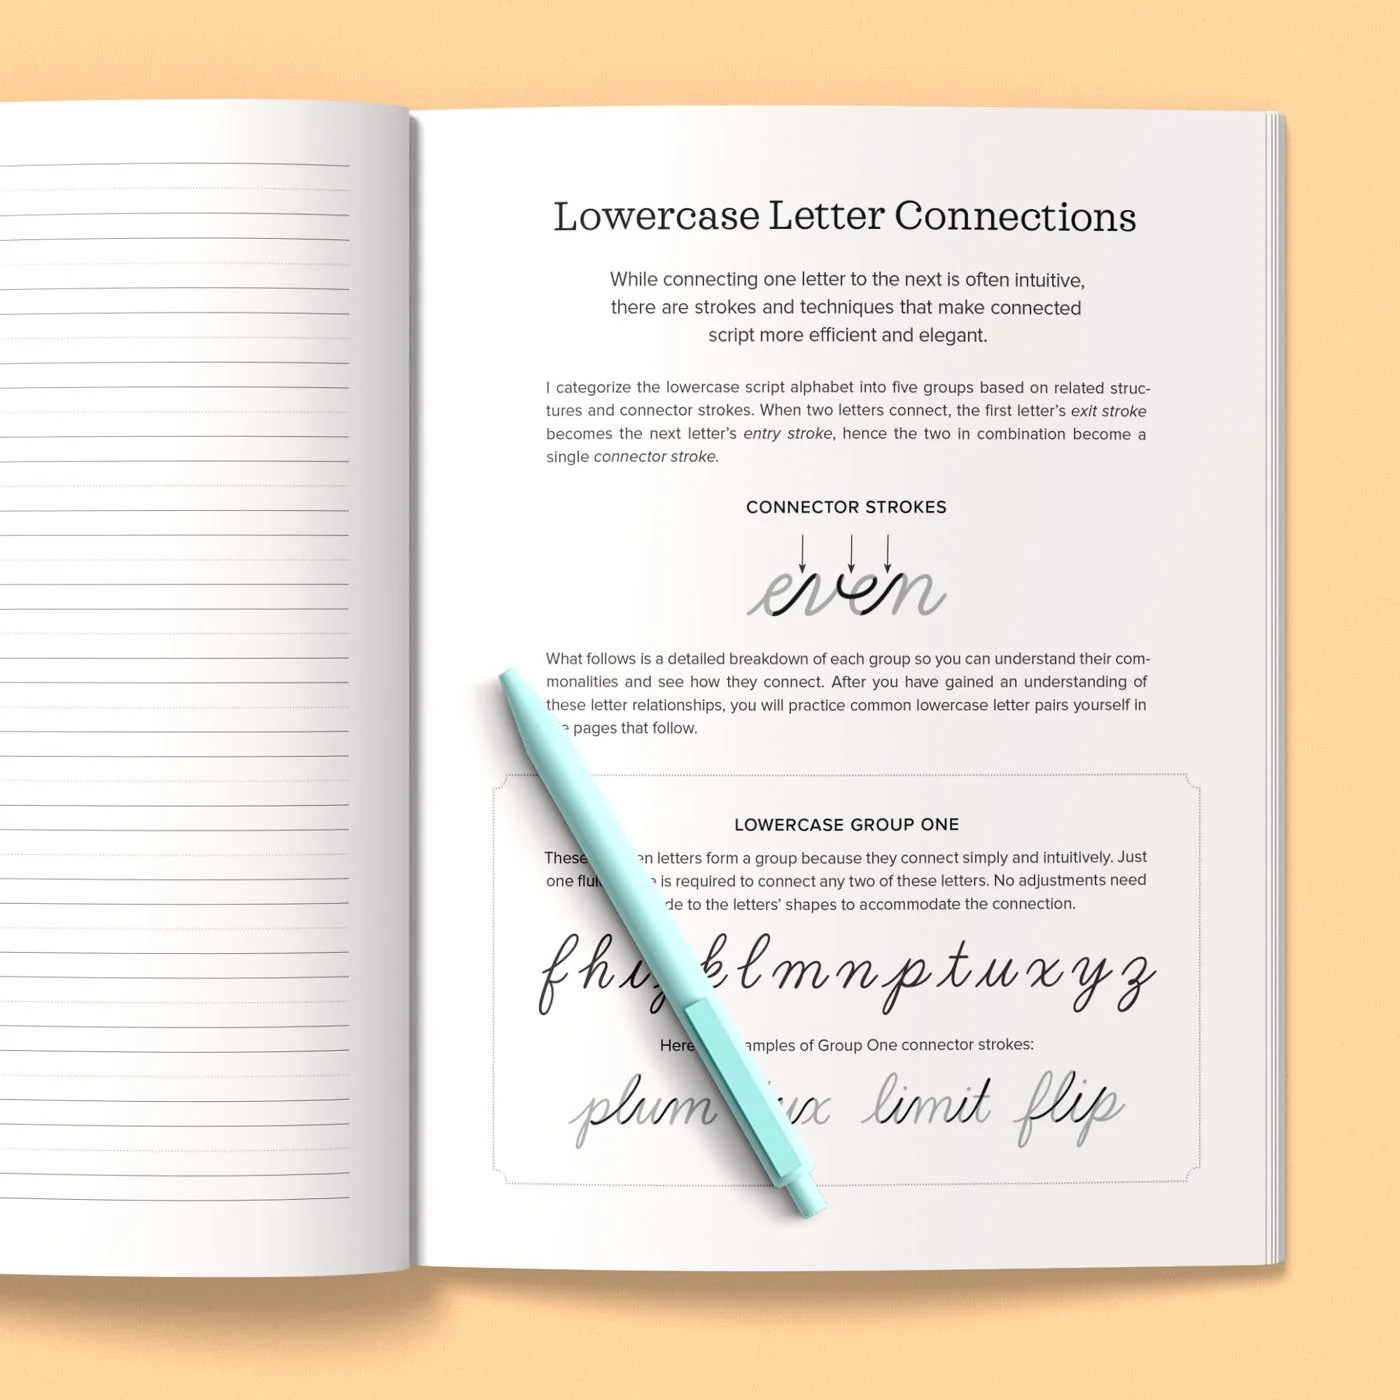 Lowercase Letter Connections
While connecting one letter to the next is often intuitive,
there are strokes and techniques that make connected
script more efficient and elegant.
I categorize the lowercase script alphabet into five groups based on related struc-
tures and connector strokes. When two letters connect, the first letter's exit stroke
becomes the next letter's entry stroke, hence the two in combination become a
single connector stroke.
CONNECTOR STROKES
even
What follows is a detailed breakdown of each group so you can understand their com-
monalities and see how they connect. After you have gained an understanding of
these letter relationships, you will practice common lowercase letter pairs yourself in
pages that follow.
LOWERCASE GROUP ONE
These letters form a group because they connect simply and intuitively. Just
one is required to connect any two of these letters. No adjustments need
to the letters' shapes to accommodate the connection.
f h i j k l m n p t u x y z
Here of Group One connector strokes:
plum limit flip